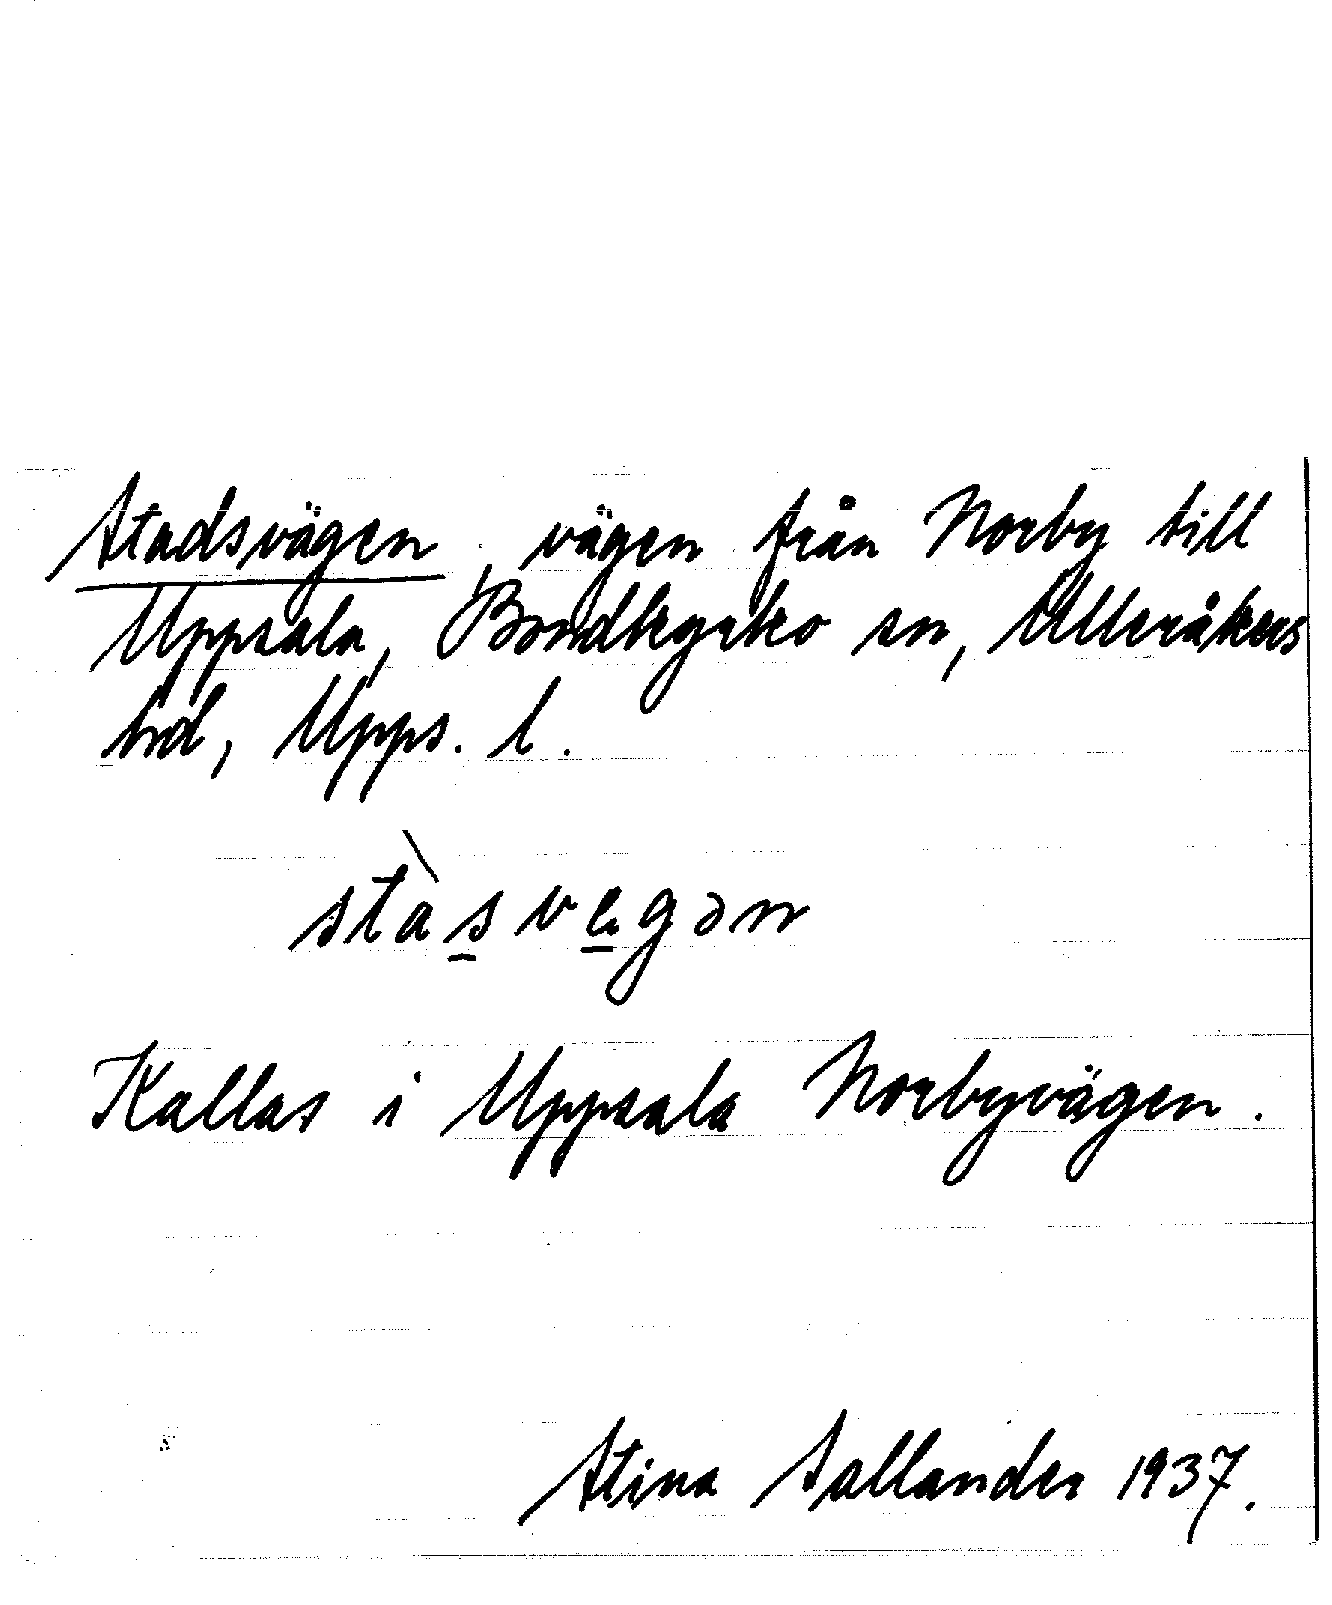 Stadsvägen, vägen från Norby till
Uppsala, Bondkyrko sn, Ulleråkers
hd, Upps. l.
stàsvegən
Kallas i Uppsala Norbyvägen.
Stina Sallander 1937.